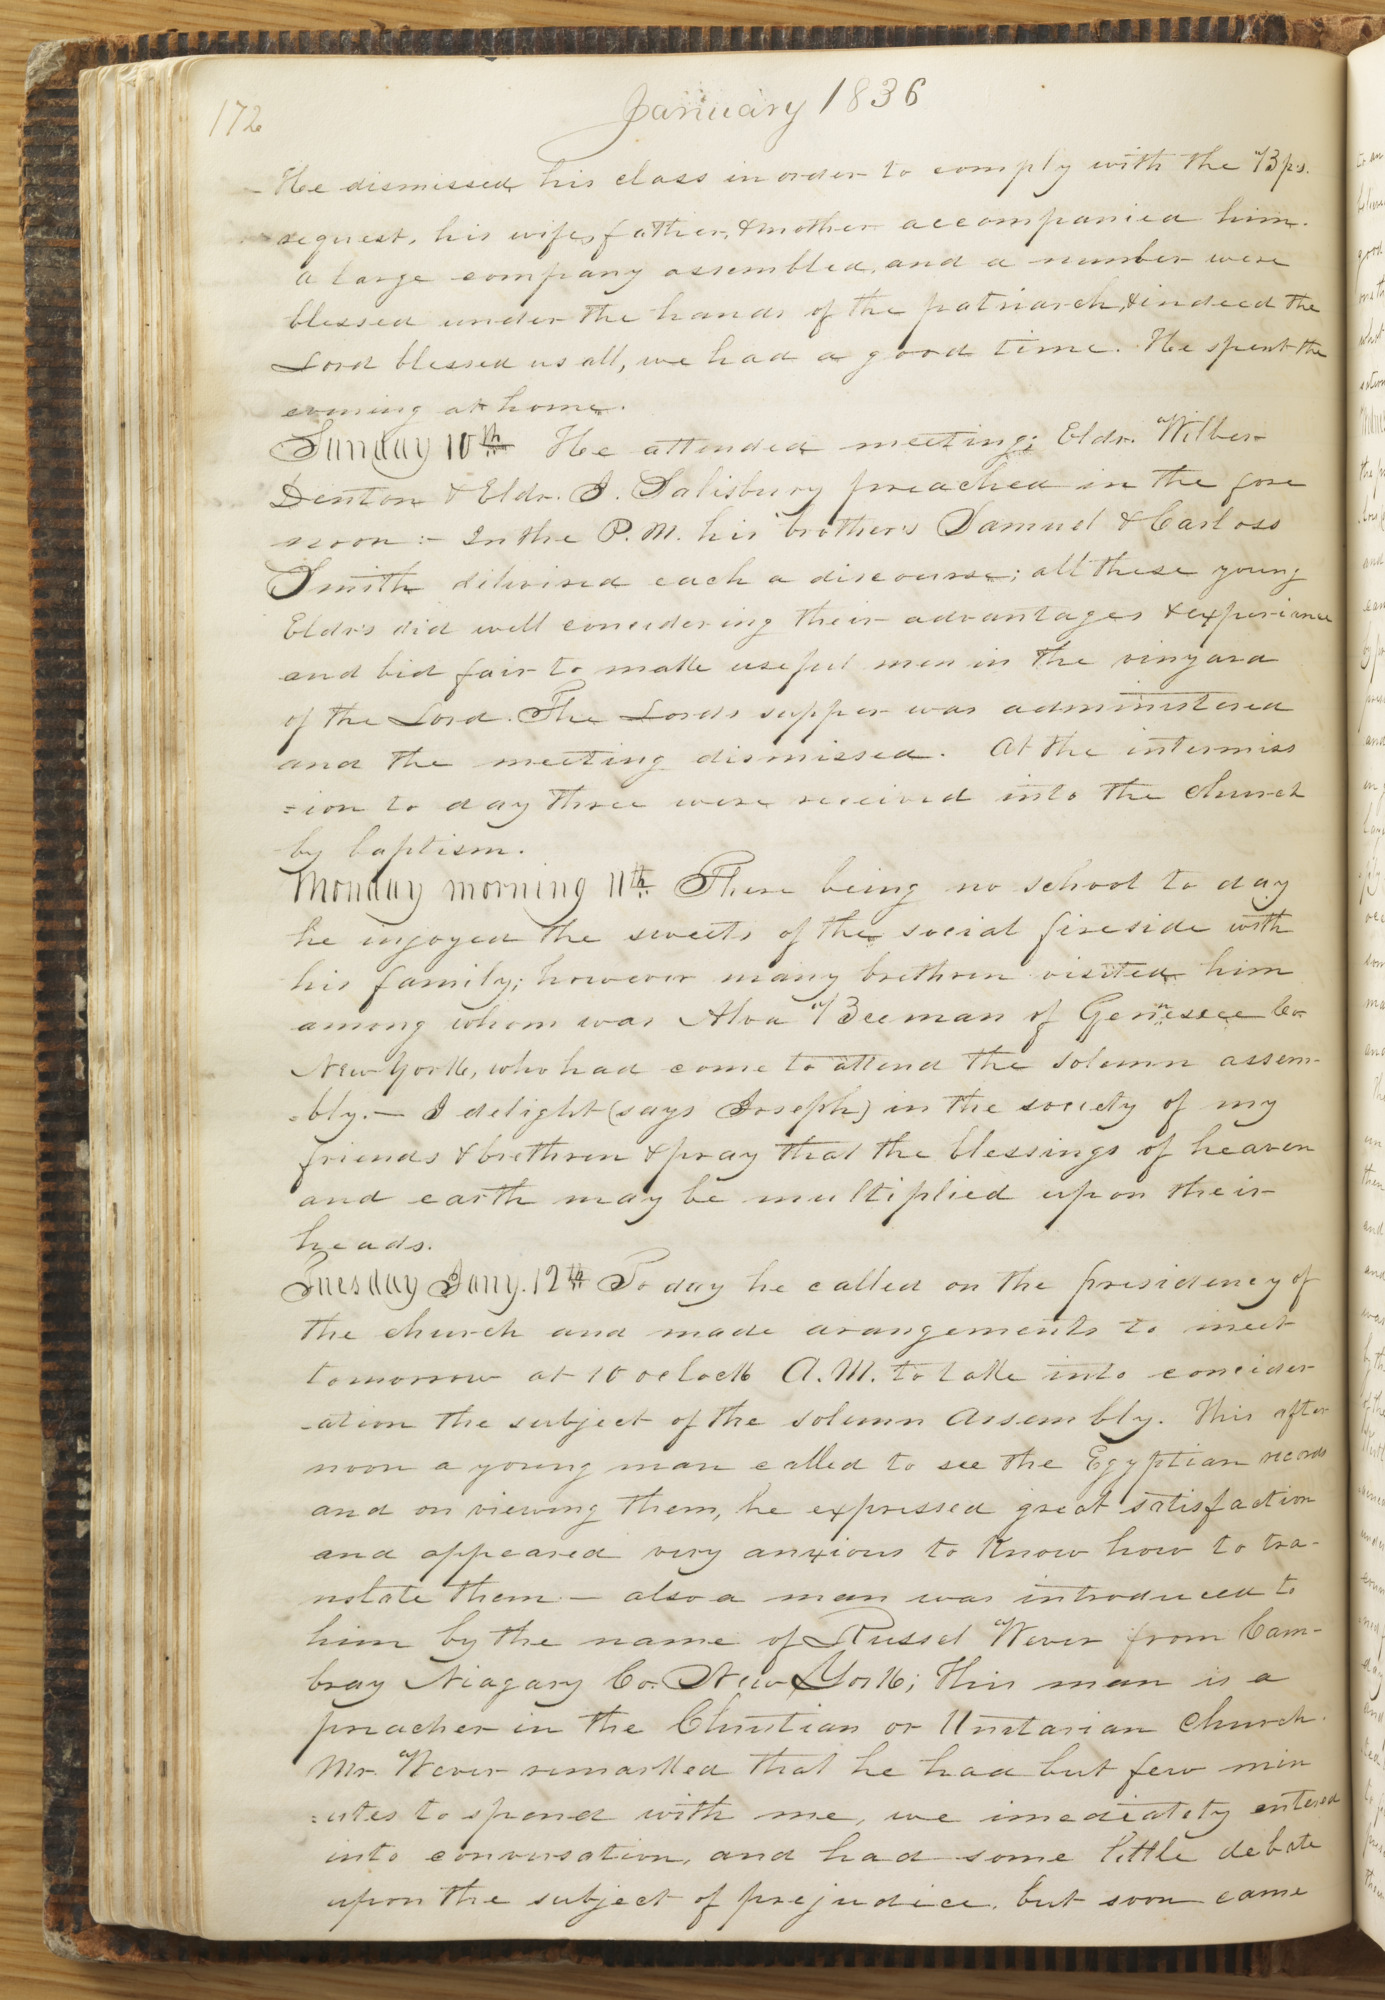 172
January 1836
He dismissed his class in order to comply with the Bps.
request, his wife, father, & mother accompanied him.
a large company assembled, and a number were
blessed under the hands of the patriarch, & indeed the
Lord blessed us all, we had a good time. He spent the
evening at home.
Sunday 10th He attended meeting; Eldr. Wilber
Denton & Eldr. J. Salisbury preached in the fore
noon :- In the P.M. his brother's Samuel & Carloss
Smith dilivired each a discourse; all these young
Eldr's did well concidering their advantages & experience
and bid fair to make useful men in the vinyard
of the Lord. The Lords supper was administered
and the meeting dismissed. At the intermiss
=ion to day three were received into the church
by baptism.
Monday morning 11th There being no school to day
he injoyed the sweets of the social fireside with
his family; however many brethren visited him
among whom was Alva Beeman of Genesee Co
New York, who had come to attend the solemn assem-
=bly.— I delight (says Joseph) in the society of my
friends & brethren & pray that the blessings of heaven
and earth may be multiplied upon their
heads.
Tuesday Jany. 12th To day he called on the presidency of
the church and made arangements to meet
tomorrow at 10 oclock A.M. to take into concider
-ation the subject of the solemn Assembly. This after
noon a young man called to see the Egyptian records
and on viewing them, he expressed great satisfaction
and appeared very anxious to know how to tra-
nslate them — also a man was introduced to
him by the name of Russel Wever from Cam-
bray Niagary Co. New York; This man is a
preacher in the Christian or Unitarian Church.
Mr. Wever remarked that he had but few min
=utes to spend with me, we imediately entered
into conversation, and had some little debate
upon the subject of prejudice, but soon came